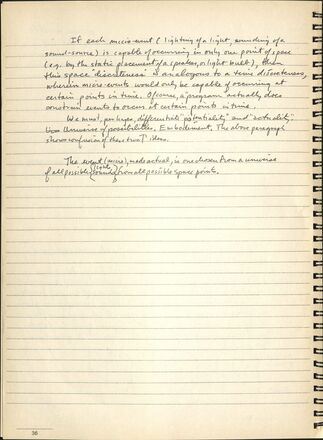 If each micro-event (lighting of a light, sounding of a
sound-source) is capable of occurring in only one point of space
(e.g. by the static placement of a speaker, or light bulb), then
this space discreteness is analogous to a time discreteness,
wherein micro-events would only be capable of occurring at
certain points in time. Of course, a program actually does
constrain events to occur at certain points in time.
We must, perhaps, differentiate "potentiality" and "actuality":
Universe of possibilities, Embodiment. The above paragraph
shows confusion of these two ideas.
The event (micro), made actual, is one chosen from a universe
of all possible (lights, sounds) from all possible space points.
36